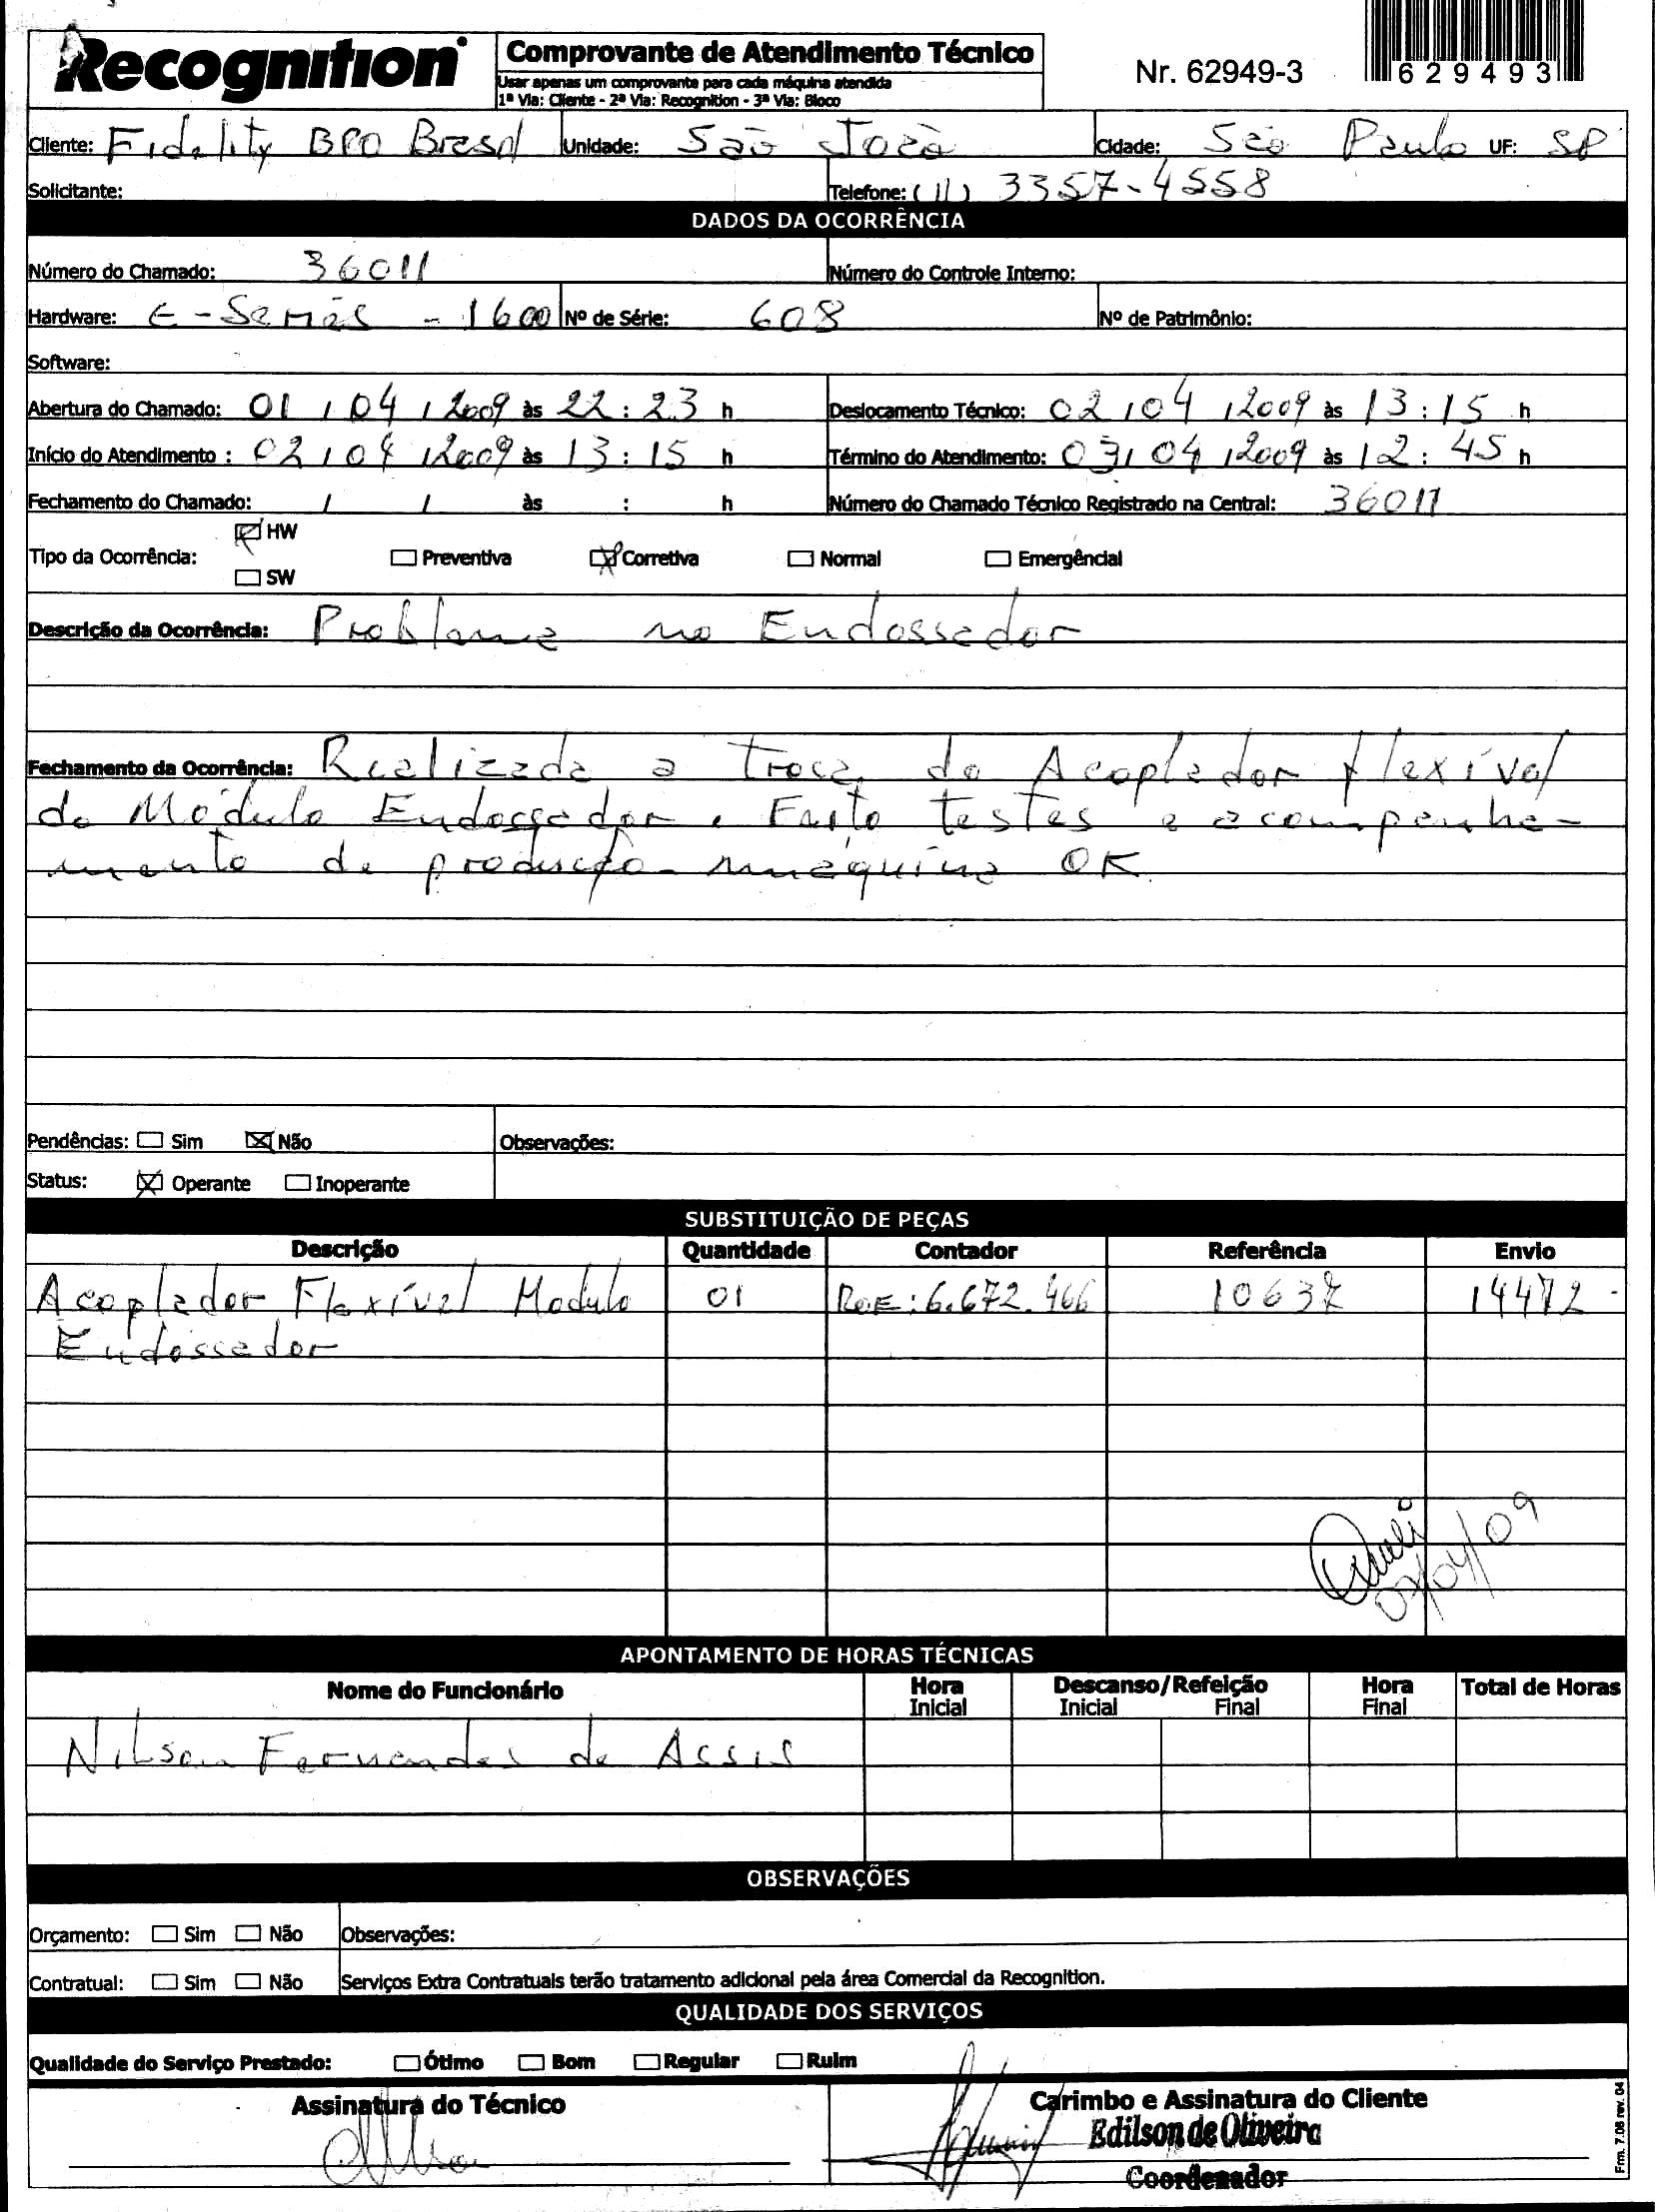 Recognition
Comprovante de Atendimento Técnico
Usar apenas um comprovante para cada máquina atendida
1ª Via: Cliente - 2ª Via: Recognition - 3ª Via: Bloco
Nr. 62949-3
629493
Cliente: Fidelity BPO Brasil Unidade: São João Cidade: São Paulo UF: SP
Solicitante: Telefone: (11) 3357-4558
DADOS DA OCORRÊNCIA
Número do Chamado: 36011 Número do Controle Interno:
Hardware: E-Series - 1600 Nº de Série: 608 Nº de Patrimônio:
Software:
Abertura do Chamado: 01 / 04 / 2009 às 22 : 23 h Deslocamento Técnico: 02 / 04 / 2009 às 13 : 15 h
Início do Atendimento : 02 / 04 / 2009 às 13 : 15 h Término do Atendimento: 03 / 04 / 2009 às 12 : 45 h
Fechamento do Chamado: / / às : h Número do Chamado Técnico Registrado na Central: 36011
HW
Tipo da Ocorrência: Preventiva Corretiva Normal Emergêncial
SW
Descrição da Ocorrência: Problema no Endossador
Fechamento da Ocorrência: Realizada a troca do Acoplador flexível
do Módulo Endossador. Feito testes e acompanha-
mento de produção máquina OK
Pendências: Sim Não Observações:
Status: Operante Inoperante
SUBSTITUIÇÃO DE PEÇAS
Descrição Quantidade Contador Referência Envio
Acoplador Flexível Modulo 01 6.672.466 14472
Endossador
02/04/09
APONTAMENTO DE HORAS TÉCNICAS
Nome do Funcionário Hora Inicial Descanso/Refeição Inicial Final Hora Final Total de Horas
Nilson Fernandes de Assis
OBSERVAÇÕES
Orçamento: Sim Não Observações:
Contratual: Sim Não Serviços Extra Contratuais terão tratamento adicional pela área Comercial da Recognition.
QUALIDADE DOS SERVIÇOS
Qualidade do Serviço Prestado: Ótimo Bom Regular Ruim
Assinatura do Técnico Carimbo e Assinatura do Cliente
Edilson de Oliveira
Coordenador
Frm. 7.06 rev. 04